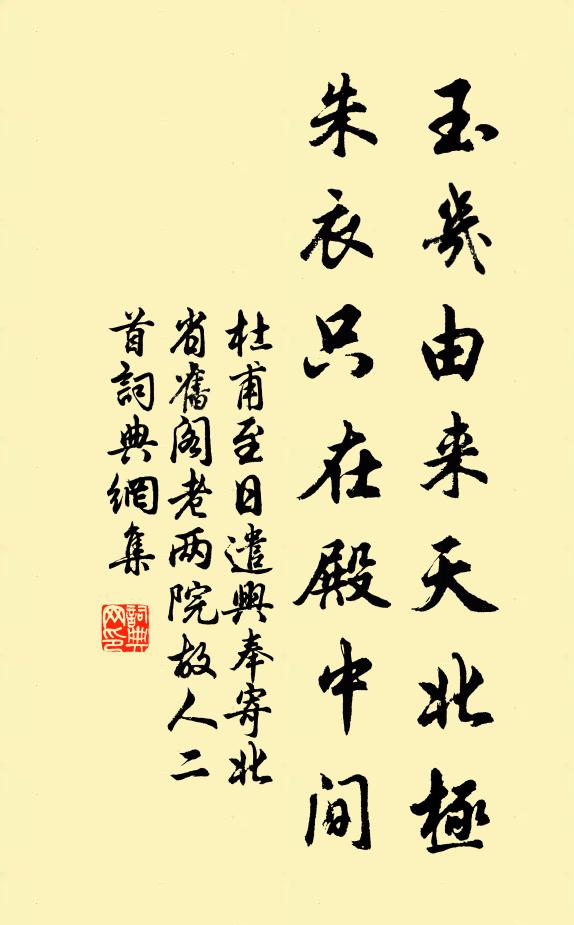 玉幾由来天北極
朱衣只在殿中間
杜甫至日遣興奉寄北
省舊閣老两院故人二
首詞典網集
詞典
网印